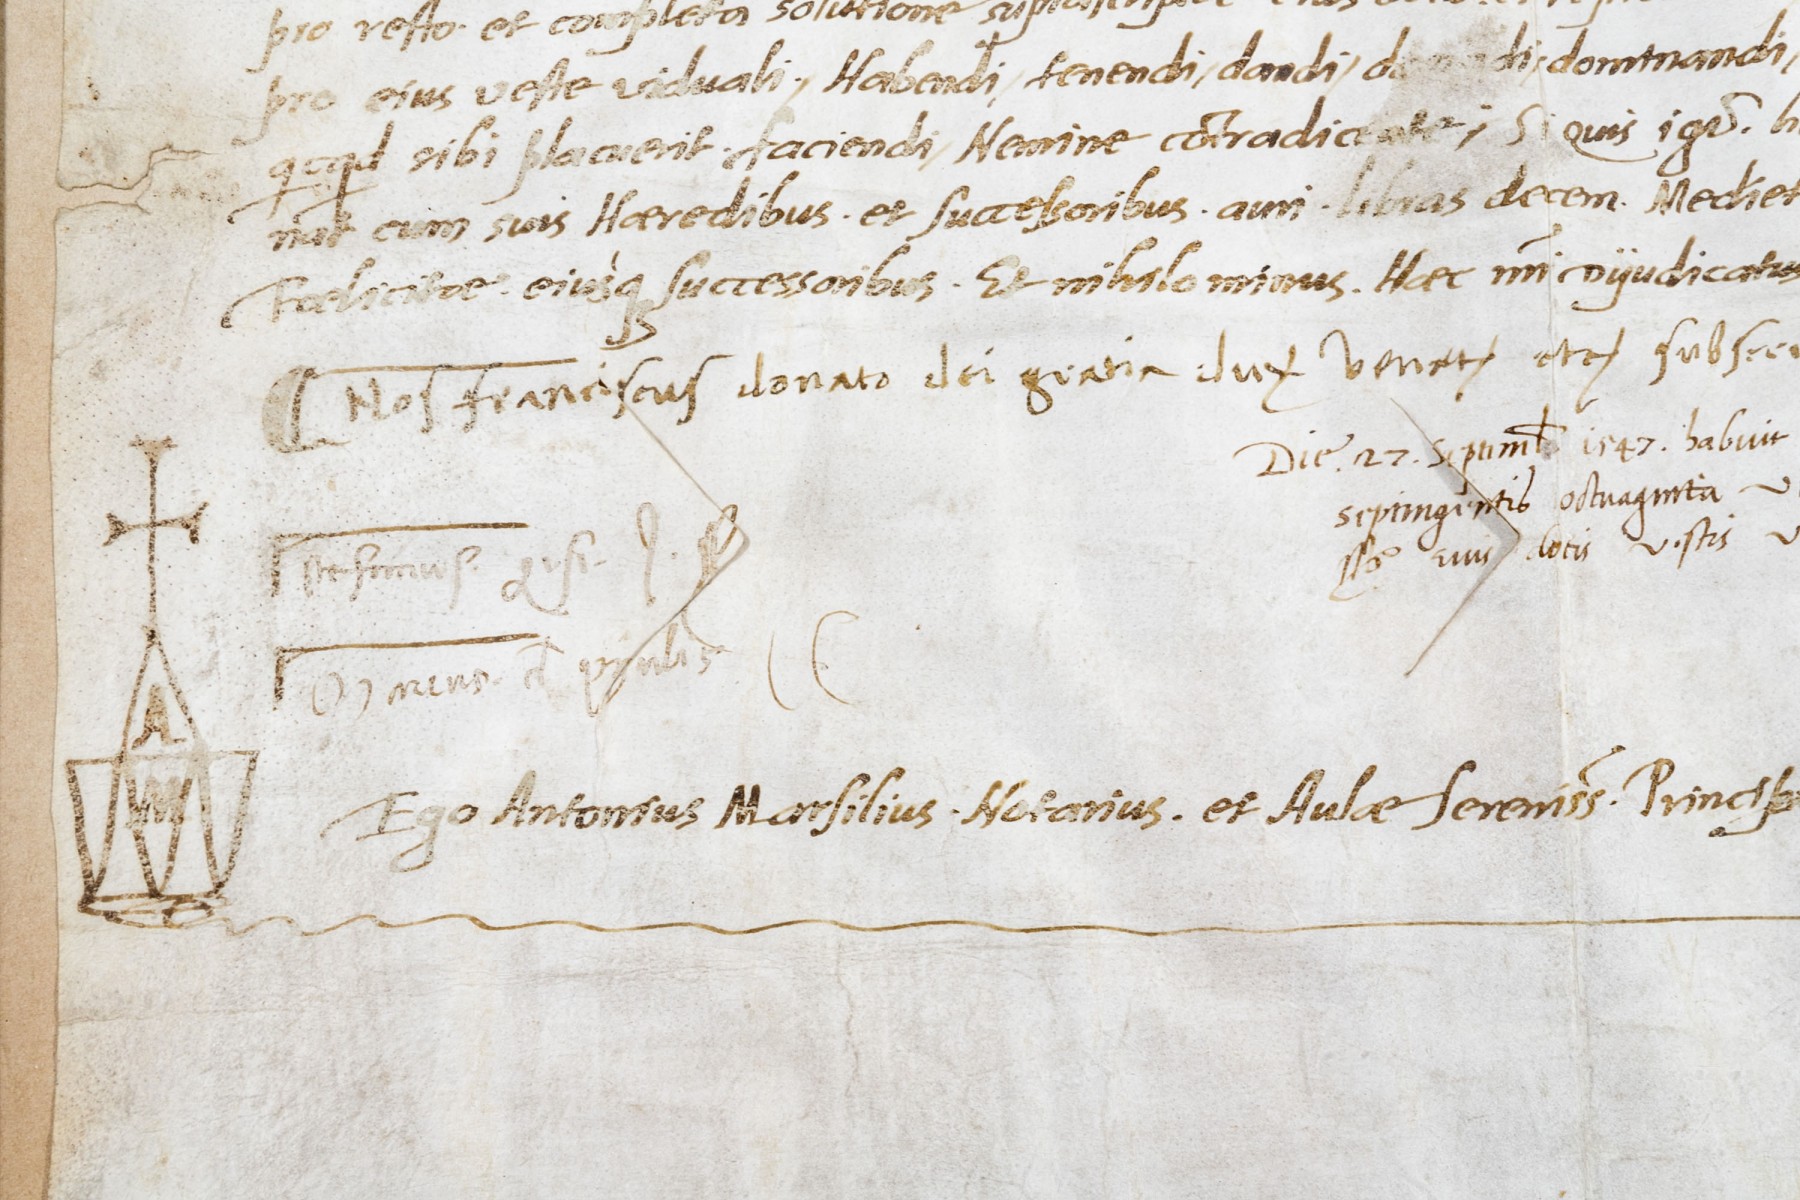 pro resto. et completa solutione
pro eius veste viduali, Habendi, tenendi, dandi, dominandi,
qcqd sibi placuerit. faciendi, Nemine cōtradicente; Si quis igr.
nat cum suis Hæredibus. et successoribus. auri. libras decem. Mediet
Fœlicitæ. eiusq successoribus. Et nihilo minus. Hæc mī dijudicatus
Nos franciscus donato dei gratia dux Venet etc subscri
Die. 27. septemb 1547. habuit
septingentis octuaginta
eius dotis vestis
A
M
Ego Antonius Marsilius. Notarius. et Aulæ Sereniss. Princip